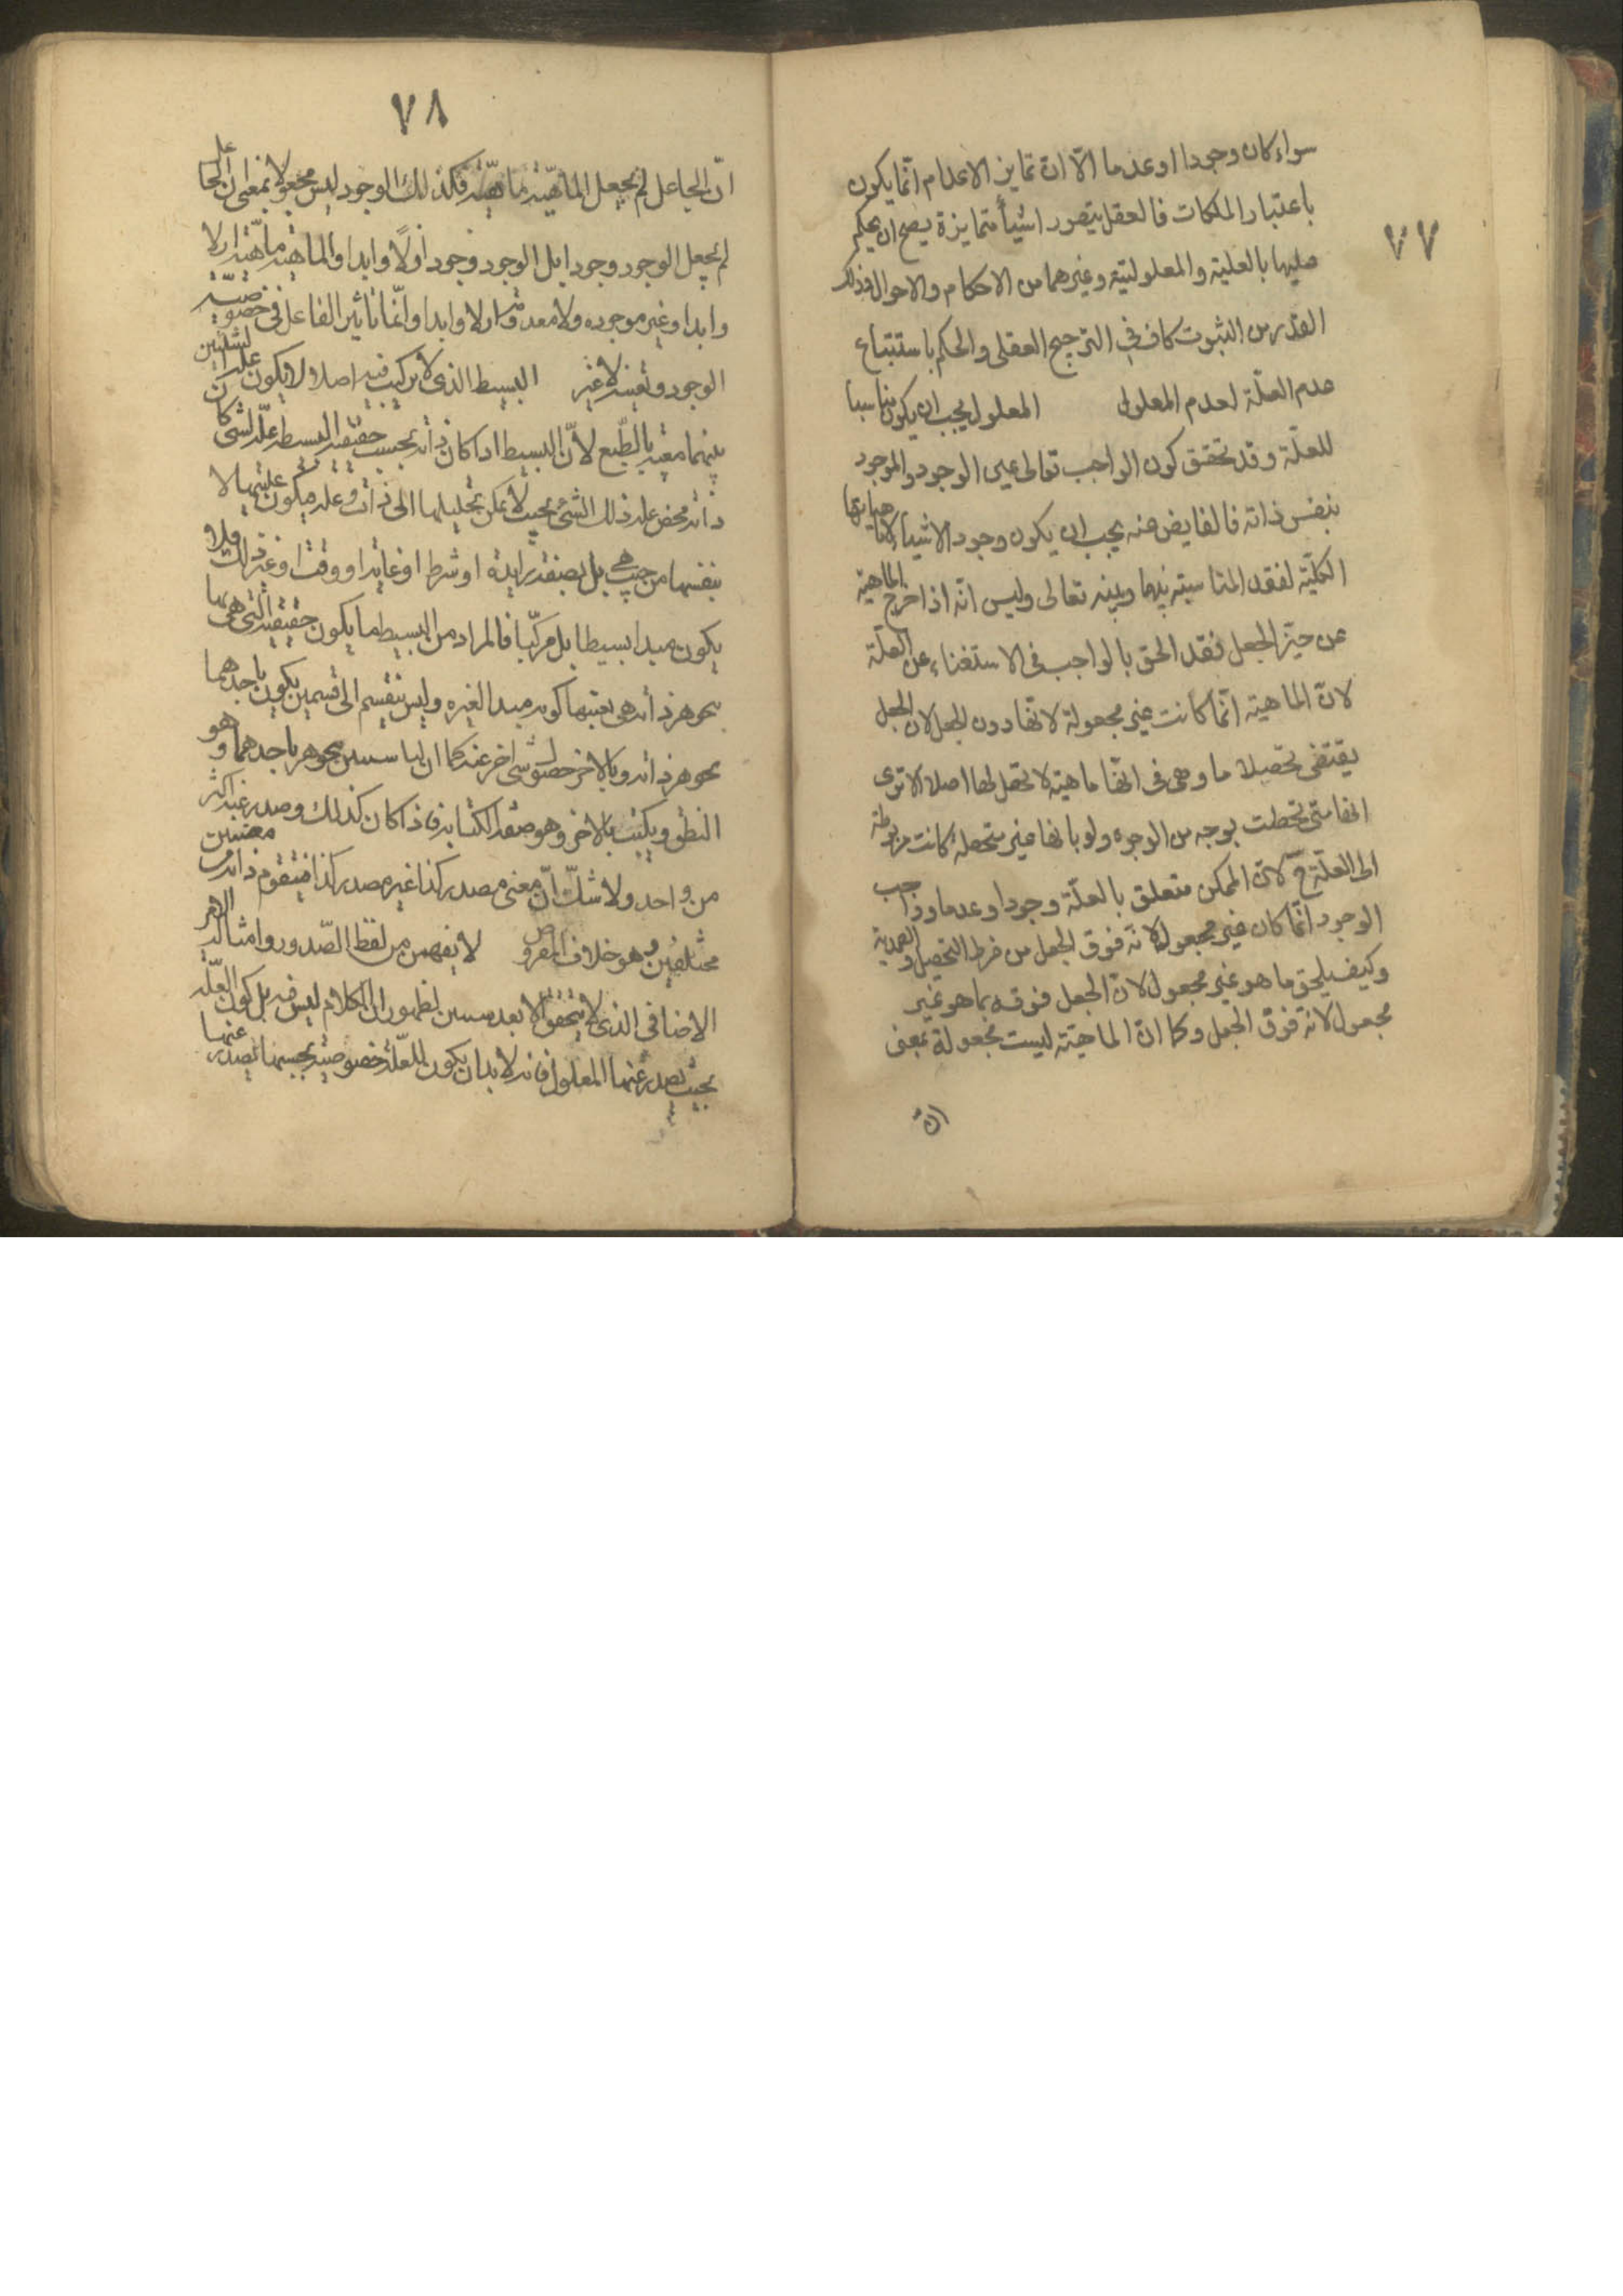 ٧٧
سواء كان وجودا او عدما الّا انّ تمايز الاعدام انّما يكون
باعتبار الملكات فالعقل يتصور اشيأ متمايزة يصح ان يحكم
عليها بالعلية والمعلولية وغيرهما من الاحكام والاحوال فذلك
القدر من الثبوت كاف في الترجيح العقلى والحكم باستتباع
عدم العلّة لعدم المعلول المعلول يجب ان يكون مناسبا
للعلّة وقد تحقق كون الواجب تعالى عين الوجود والموجود
بنفس ذاته فالفايض عنه يجب ان يكون وجود الاشياء لا ماهياتها
الكلّية لفقد المناسبة بينها وبينه تعالى وليس انّه اذا خرج الماهية
عن حيّز الجعل فقد الحق بالواجب فى الاستغناء عن العلّة
لانّ الماهية انّما كانت غير مجعولة لانها دون الجعل لان الجعل
يقتضى تحصيلا ما وهى فى انها ماهية لا تحصل لها اصلا الا ترى
انها متى تحصلت بوجه من الوجوه ولو بانها غير متحصلة كانت مربوطة
الى العلّة ح لانّ الممكن متعلق بالعلّة وجودا وعدما وواجب
الوجود انّما كان غير مجعول لانّه فوق الجعل من فرط التحصل والصمدية
وكيف يلحق ما هو غير مجعول لانّ الجعل فوقه بما هو غير
مجعول لانّه فوق الجعل وكما انّ الماهيّة ليست مجعولة بمعنى
انّ
٧٨
انّ الجاعل لم يجعل الماهيّة ماهيّة فكذلك الوجود ليس مجعولا بمعنى ان الجاعل
لم يجعل الوجود وجودا بل الوجود وجود اولاً وابدا والماهية ماهيّة اولا
وابدا وغير موجوده ولا معدومة اولا وابدا وانّما تاثير الفاعل فى خصوصيّة
الوجود وتعينه لا غير البسيط الذى لا تركيب فيه اصلا لا يكون علة لشيئين
بينهما معيّة بالطّبع لانّ البسيط اذا كان ذاته بحسب حقيقته البسيطه علّة لشى كان
ذاته محض علة ذلك الشئ بحيث لا يمكن تحليلها الى ذات وعلة ليكون عليتها لا
بنفسها من حيث هي بل بصفة زايدة او شرط او غاية او وقت او غير ذلك فلا
يكون مبدا بسيطا بل مركّبا فالمراد من البسيط ما يكون حقيقته التى هى بها
يتجوهر ذاته هى بعينها كونه مبدا لغيره وليس ينقسم الى قسمين يكون باحدهما
تجوهر ذاته وبالاخر حصول شى اخر عنه كما ان لنا شيئين نتجوهر باحدهما وهو
النطق ونكتب بالاخر وهو صفة الكتابة فاذا كان كذلك وصدر عنه اكثر
من واحد ولا شكّ انّ معنى مصدر كذا غير مصدر كذا فيتقوم ذاته من معنيين
مختلفين وهو خلاف المفروض لا يفهمن من لفظ الصّدور وامثاله الامر
الاضافى الذى لا يتحقق الا بعد شيئين لظهور ان الكلام ليس فيه بل كون العلّه
بحيث يصدر عنها المعلول فانه لابد ان يكون للعلّة خصوصية بحسبها يصدر عنها